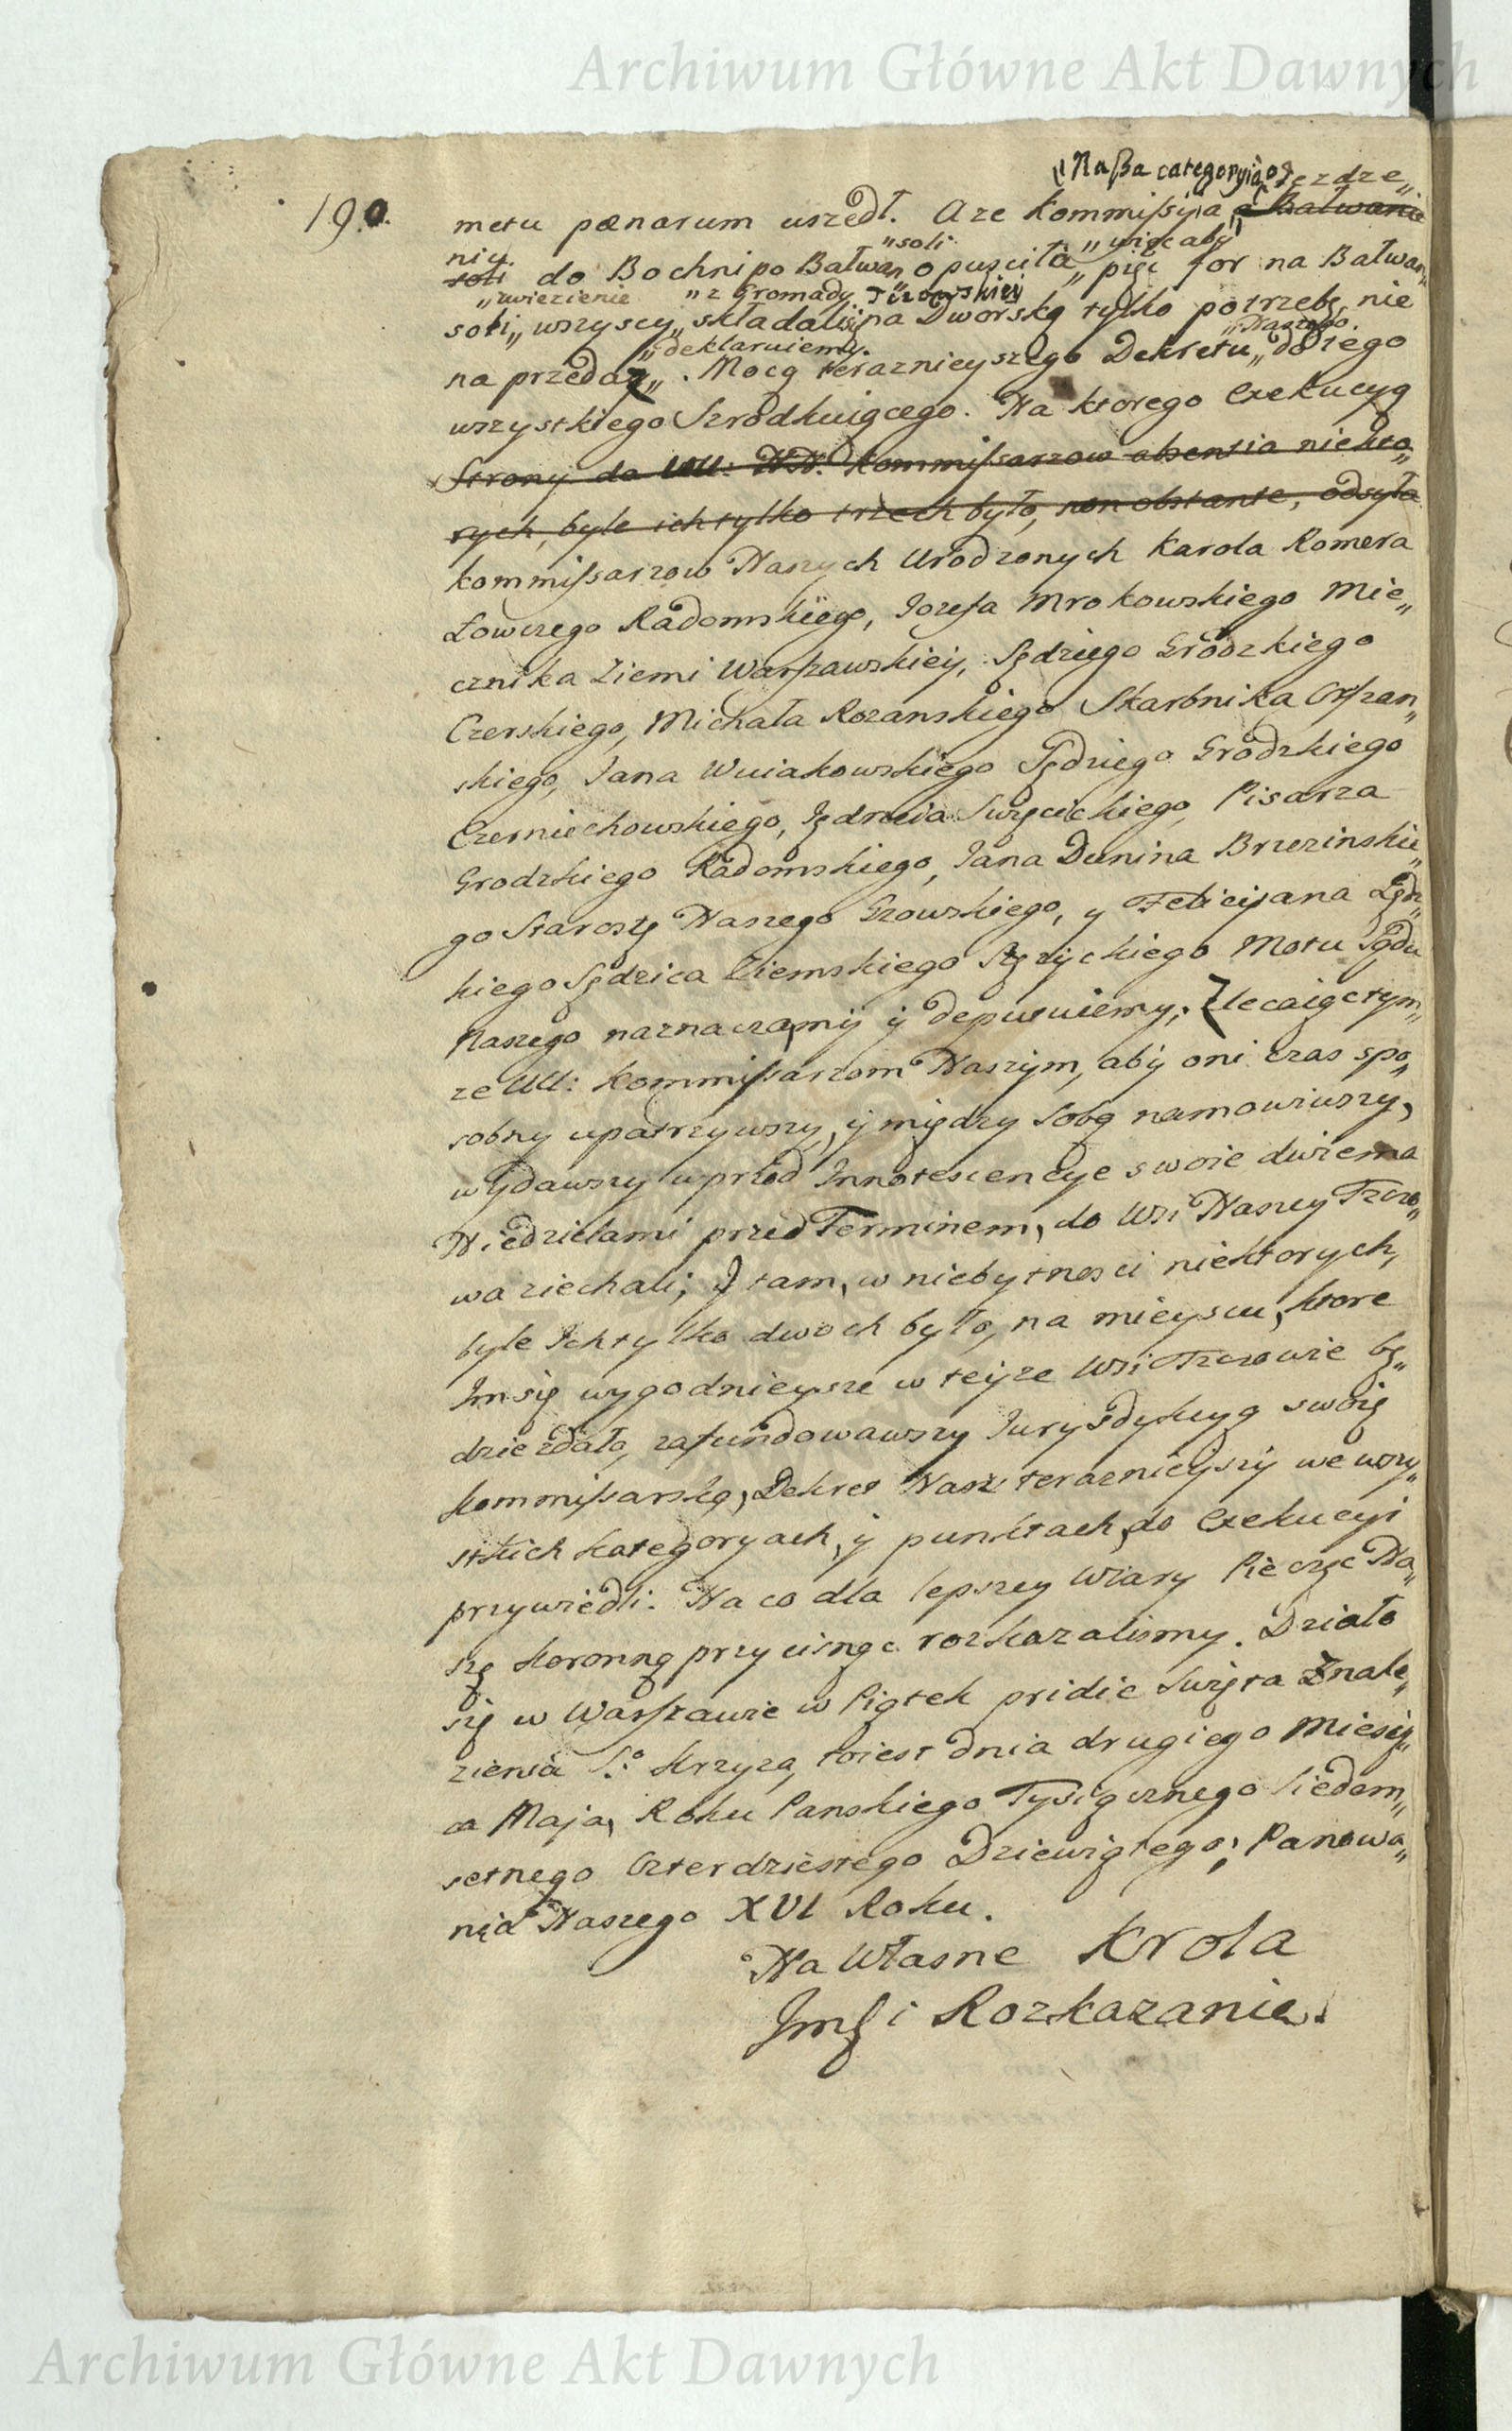 Archiwum Główne Akt Dawnych
190.
„Naßa categoryią o iezdze„
metu pœnarum uszedł. Aze Kommißyia o Bałwanie
niu. „soli „więc aby
soli do Bochni po Bałwan„ opusciła„ pięc for na Bałwan„
„zwiezienie „z Gromady Tczowskiey
soli„ wszyscy„ składali się na Dworską tylko potrzebę, nie
„deklaruiemy. „Naszego.
na przedaż„. Mocą teraznieyszego Dekretu„ do tego
wszystkiego Szrodkuiącego. Na ktorego Exekucyą
Strony do UU: NN: Kommißarzow absentia niekto„
rych, byle ich tylko trzech było, non obstante, odsyła
Kommißarzow Naszych Urodzonych Karola Romera
Łowczego Radomskiego, Jozefa Mrokowskiego Mie„
cznika Ziemi Warszawskiey, Sędziego Grodzkiego
Czerskiego, Michała Rozanskiego Skarbnika Orszan„
skiego, Jana Wuiakowskiego Sędziego Grodzkiego
Czerniechowskiego, Jędrzeia Swięcickiego, Pisarza
Grodzkiego Radomskiego, Jana Dunina Brzezinskie„
go Starostę Naszego Gzowskiego, y Felicyana
kiego Sędzica Ziemskiego Stęzyckiego Motu Sądu
Naszego naznaczamy y deputuiemy; Zlecaiąc tym„
ze UU: Kommißarzom Naszym, aby oni czas spo„
sobny upatrzywszy, y między Sobą namowiwszy,
wydawszy wprzod Innotescencye swoie dwiema
Niedzielami przed Terminem, do Wsi Naszey Tczo„
wa ziechali; y tam, w niebytnosci niektorych,
byle Ich tylko dwoch było, na mieyscu, ktore
Im się wygodnieysze w teyze Wsi Tczowie bę„
dzie zdało, zafundowawszy Jurysdykcyą swoię
Kommißarską, Dekret Nasz teraznieyszy we wszy„
stkich kategoryach, y punktach, do Exekucyi
przywiedli. Na co dla lepszey Wiary Pieczęc Na„
szę Koronną przycisnąc rozkazalismy. Działo
się w Warszawie w Piątek pridie Swięta Znale„
zienia S.o Krzyza, toiest dnia drugiego Miesią„
ca Maja, Roku Panskiego Tysiącznego Siedem„
setnego Czterdziestego Dziewiątego; Panowa„
nia Naszego XVI Roku.
Na Własne Krola
Jmßi Rozkazanie.
Archiwum Główne Akt Dawnych